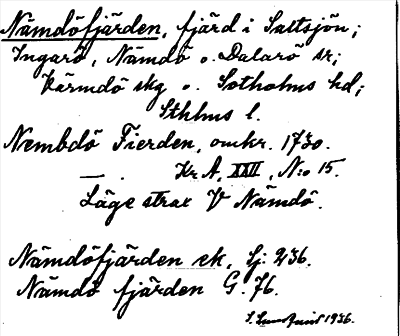 Nämdöfjärden, fjärd i Saltsjön;
Ingarö, Nämdö o. Dalarö sr;
Värmdö skg o. Sotholms hd;
Sthlms l.
Nembdö Fierden, omkr. 1730.
— . Kr A, XXII, N:o 15.
Läge strax V Nämdö.
Nämdöfjärden ek. Sj. 236.
Nämdö fjärden G. 76.
1936.